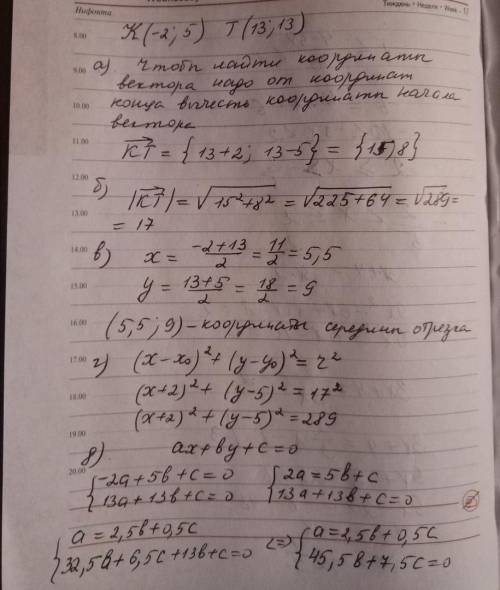 Нифонта
Тиждень • Неделя • Week - 17
8.00 К(-2; 5) Т(13; 13)
9.00 а). Чтобы найти координаты
вектора надо от координат
10.00 конца вычесть координаты начала
вектора
11.00 KT = {13+2; 13-5} = {15; 8}
12.00
б) |KT| = √15²+8² = √225+64 = √289 =
13.00
= 17
14.00 в) x = -2+13/2 = 11/2 = 5,5
15.00 y = 13+5/2 = 18/2 = 9
16.00 (5,5; 9) - координаты середины отрезка
17.00 г) (x-x₀)² + (y-y₀)² = r²
18.00 (x+2)² + (y-5)² = 17²
(x+2)² + (y-5)² = 289
19.00
д). ax+by+c=0
20.00 {-2a+5b+c=0 {2a=5b+c
{13a+13b+c=0 {13a+13b+c=0
{a=2,5b+0,5c <=> {a=2,5b+0,5c
{32,5b+6,5c+13b+c=0 {45,5b+7,5c=0